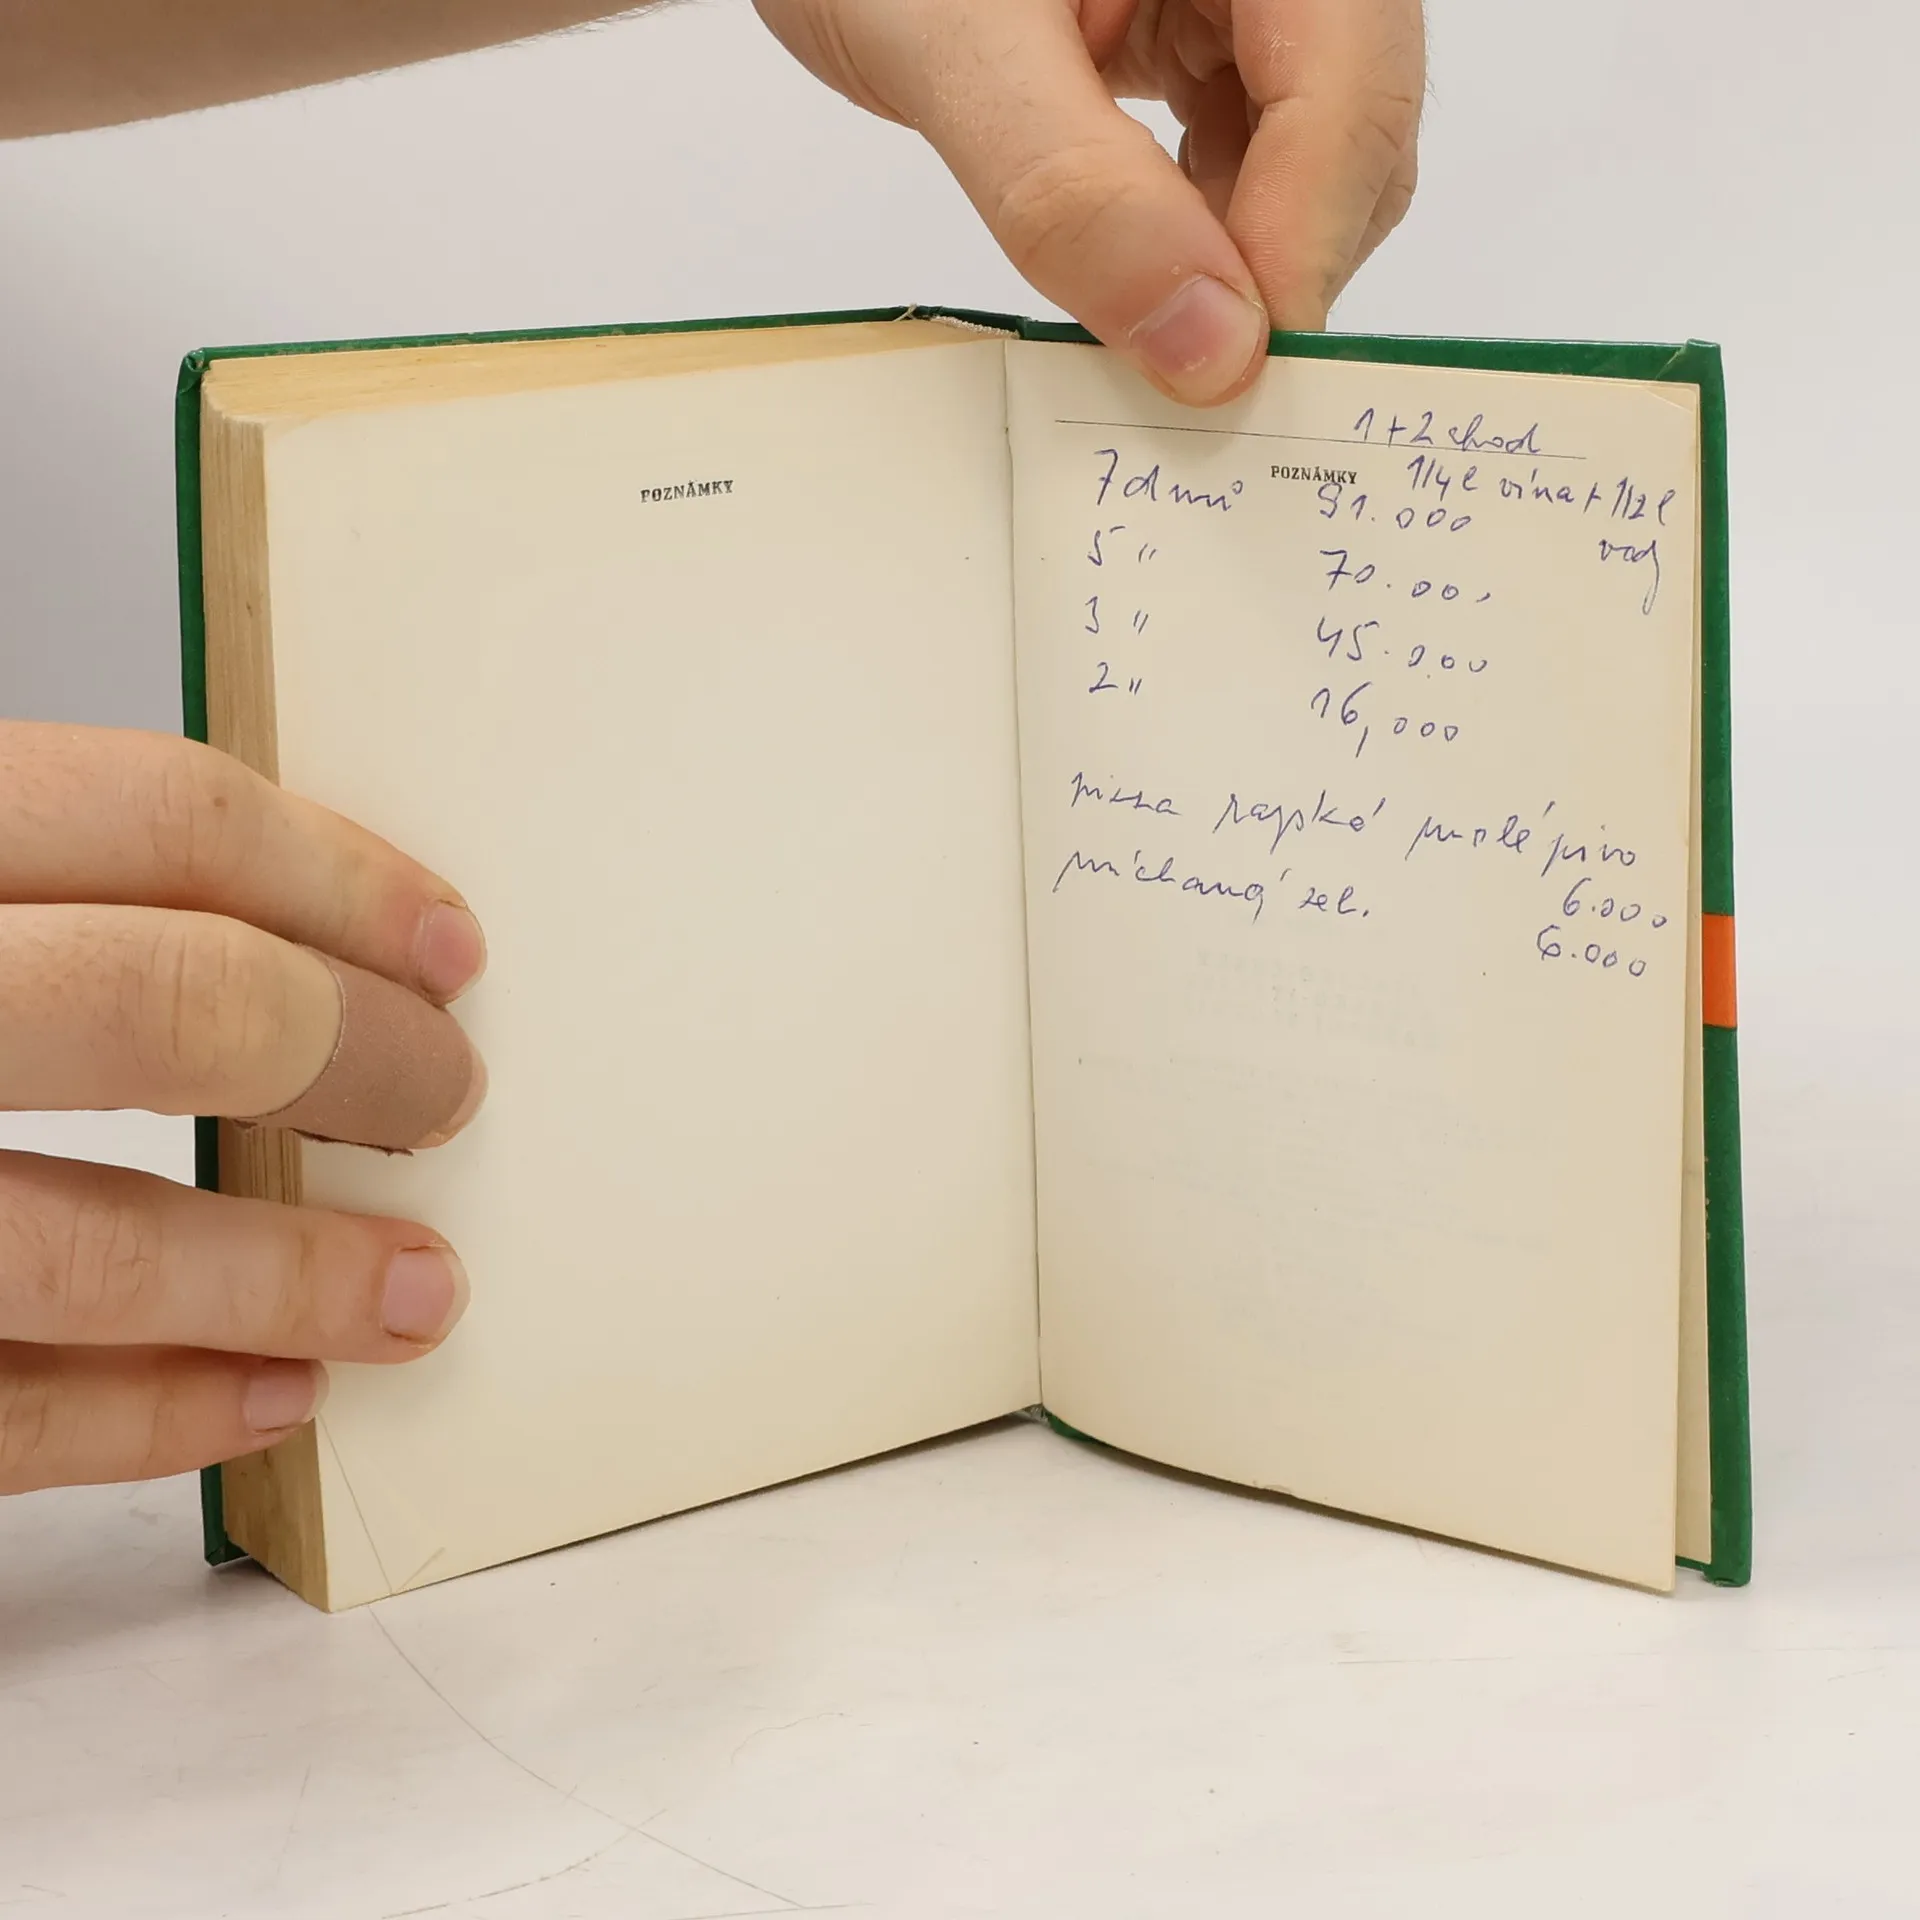 POZNÁMKY
1+2 chod
POZNÁMKY 1/4 l vína + 1/2 l
vody
7 dnů 91.000
5 " 70.000
3 " 45.000
2 " 16,000
pizza rajská malé pivo
míchaný zel. 6.000
6.000